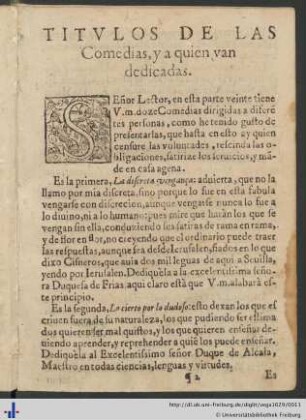 TITVLOS DE LAS
Comedias, y a quien van
dedicadas.
SEñor Lector, en esta parte veinte tiene
V.m. doze Comedias dirigidas a diferē
tes personas, como he tenido gusto de
presentarlas, que hasta en esto ay quien
censure las voluntades, rescinda las o-
bligaciones, satirize los seruicios, y mā-
de en casa agena.
Es la primera, La discreta vengança: aduierta, que no la
llamo por mia discreta, sino porque lo fue en esta fabula
vengarse con discrecion, aunque vengarse nunca lo fue a
lo diuino, ni a lo humano: pues mire que harán los que se
vengan sin ella, conduziendo sus satiras de rama en rama,
y de flor en flor, no creyendo que el ordinario puede traer
las respuestas, aunque sea desde Ierusalen, fiados en lo que
dixo Cisneros, que auia dos mil leguas de aqui a Seuilla,
yendo por Ierusalen. Dediquela a la excelentissima seño-
ra Duquesa de Frias, aqui claro está que V.m. alabará es-
te principio.
Es la segunda, Lo cierto por lo dudoso: esto dexan los que es
criuen fuera de su naturaleza, los que pudiendo ser estima
dos quieren ser mal quistos, y los que quieren enseñar de-
uiendo aprender, y reprehender a quiē los puede enseñar.
Dediquela al Excelentissimo señor Duque de Alcala,
Maestro en todas ciencias, lenguas y virtudes.
¶ 2 Es
http://dl.ub.uni-freiburg.de/diglit/vega1625/0011
© Universitätsbibliothek Freiburg